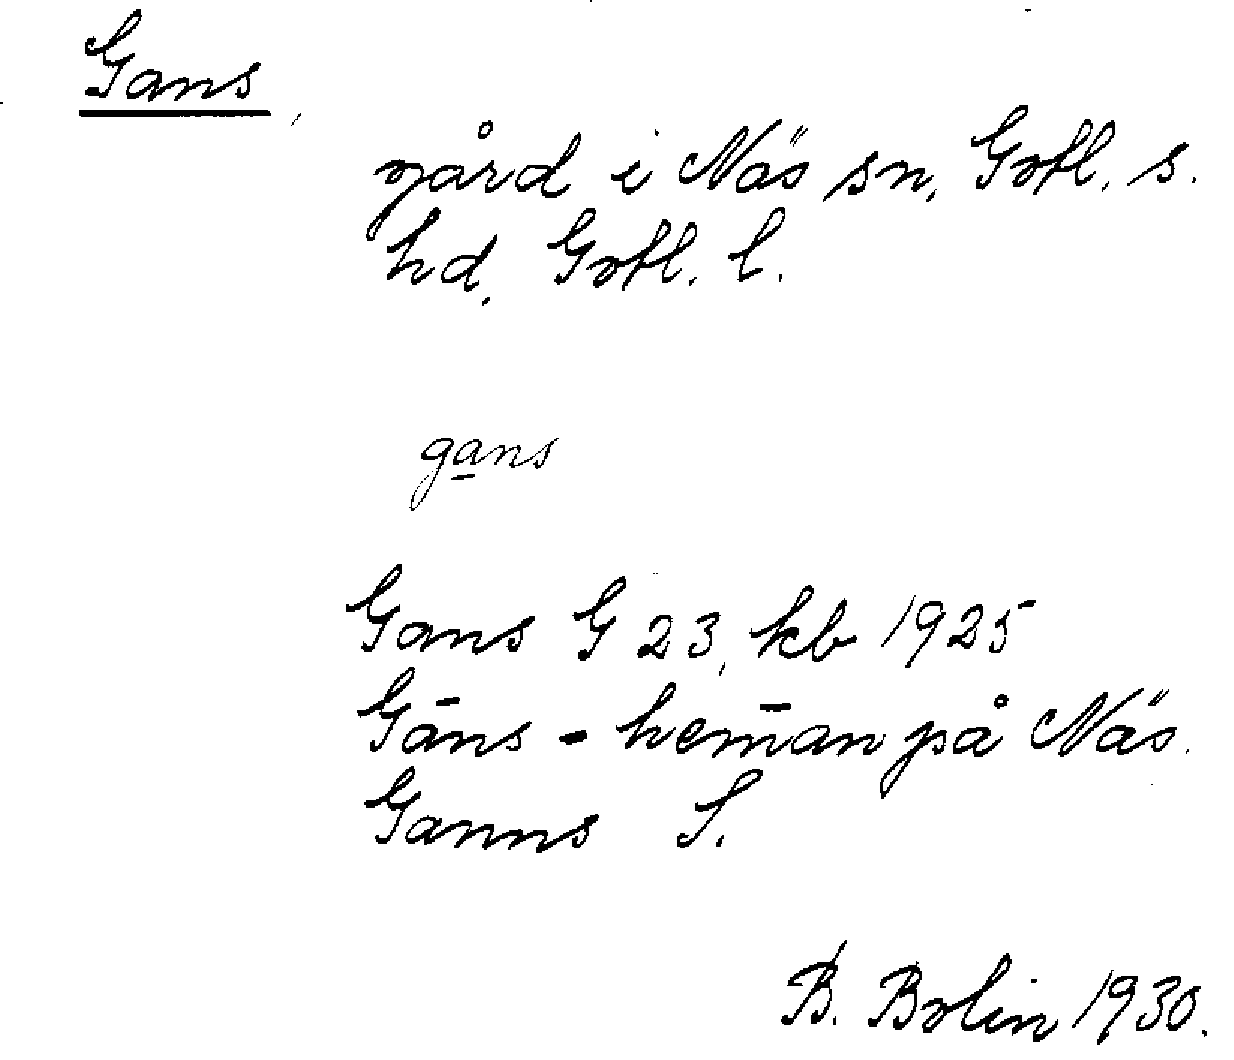 Gans,
gård i Näs sn, Gotl. s.
hd, Gotl. l.
gans
Gans G 23, kb 1925
Gān̄s - hem̄an på Näs.
Ganns S.
B. Bolin 1930.